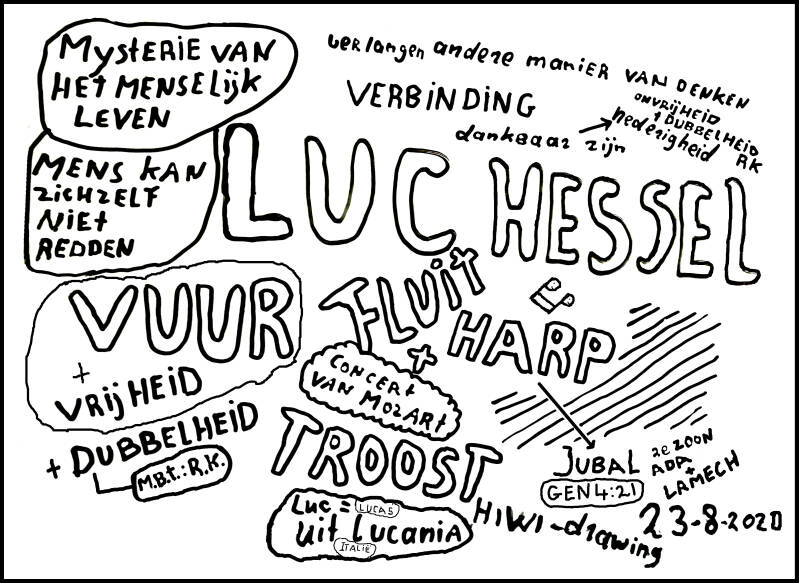 MYSTERIE VAN
HET MENSELIJK
LEVEN
verlangen andere manier VAN DENKEN
VERBINDING
ONVRIJHEID
+ DUBBELHEID
RK
dankbaar zijn
nederigheid
MENS KAN
ZICHZELF
NIET
REDDEN
LUC HESSEL
VUUR
+
VRIJHEID
+ DUBBELHEID
M.B.t.: R.K.
FLUIT
&
HARP
+
CONCERT
VAN MOZART
TROOST
JUBAL
GEN 4:21
2e ZOON
ADA
+
LAMECH
Luc = LUCAS
uit LucaniA
ITALIË
HIWI-drawing
23-8-2020